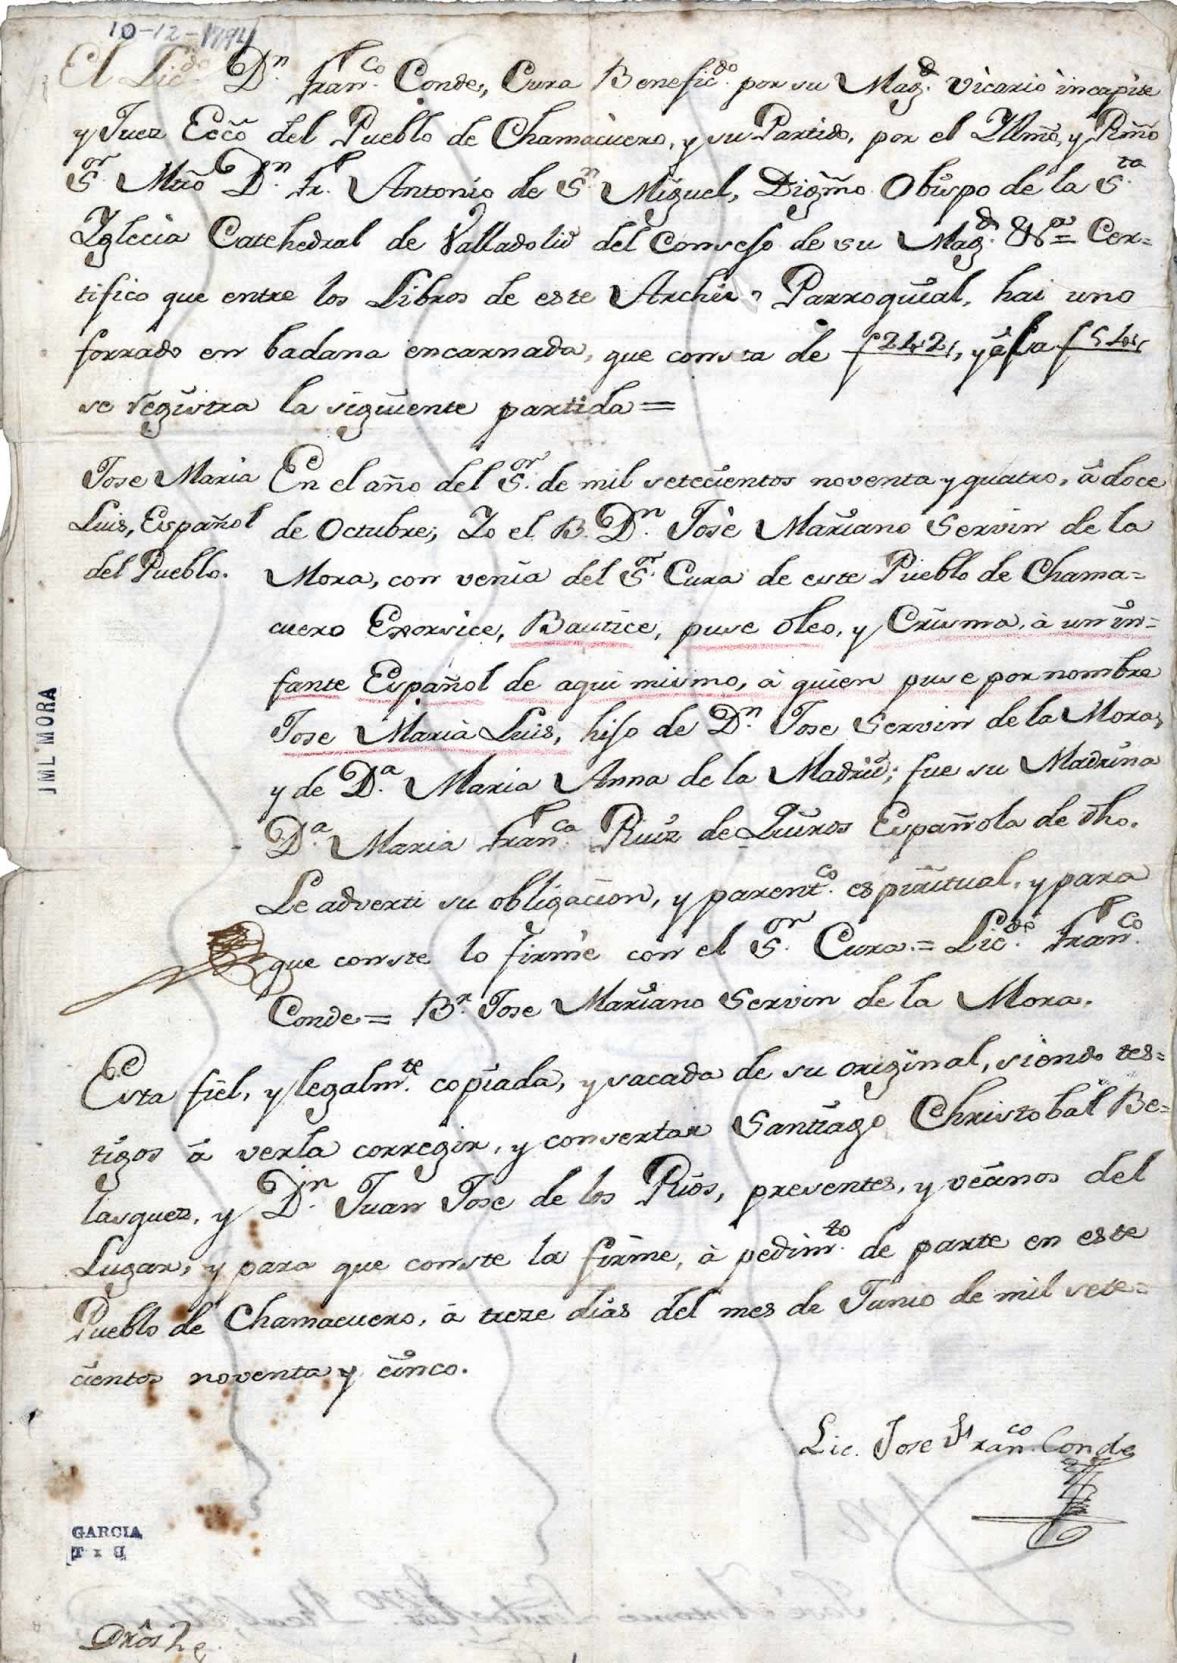 10-12-1794
El Lic.do Dn Fran.co Conde, Cura Benefic.do por su Mag.d Vicario incapite
y Juez Ecc.co del Pueblo de Chamacuero, y su Partido, por el Yllmo, y Rmo
S.or Mtro Dn. Fr. Antonio de S.n Miguel, Digmo Obispo de la S.ta
Yglecia Cathedral de Valladolid del Consejo de su Mag.d &.a = Cer=
tifico que entre los Libros de este Archivo Parroquial, hai uno
forrado en badana encarnada, que consta de f 242, y á la f
se registra la siguiente partida =
Jose Maria
Luis, Español
del Pueblo.
En el año del S.or de mil setecientos noventa y quatro, á doce
de Octubre; Yo el B. Dn. Josè Mariano Servin de la
Mora, con venia del S.or Cura de este Pueblo de Chama=
cuero Exorsice, Bautice, puse oleo, y Crisma, à un in=
fante Español de aqui mismo, à quien puse por nombre
Jose Maria Luis, hijo de Dn. Jose Servin de la Mora,
y de Da. Maria Anna de la Madrid; fue su Madrina
Da. Maria Fran.ca Ruiz de Quiros Española de dho.
Le adverti su obligacion, y parent.co espiritual, y para
que conste lo firmè con el S.or Cura. = Lic.do Fran.co
Conde = Br. Jose Mariano Servin de la Mora.
Esta fiel, y legalm.te copiada, y sacada de su original, siendo tes=
tigos á verla corregir, y consertar Santiago Christobal Be=
lasquez, y Dn. Juan Jose de los Rios, presentes, y vecinos del
Lugar; y para que conste la firme, à pedim.to de parte en este
Pueblo de Chamacuero, á treze dias del mes de Junio de mil sete=
cientos noventa y cinco.
Lic. Jose Fran.co Conde
JML MORA
GARCIA
Dros 2